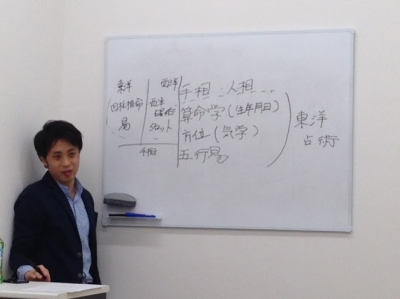 東洋
四柱推命
易
西洋
西洋
占星術
タロット
手相
手相 人相
算命学(生年月日)
方位(気学)
五行易
東洋
占術